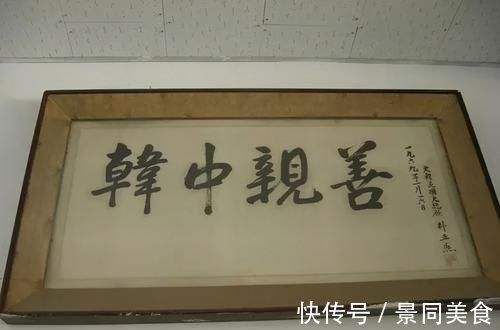 韓中親善
一九六九年
大韓民國大統領 朴正熙
快传号/景同美食